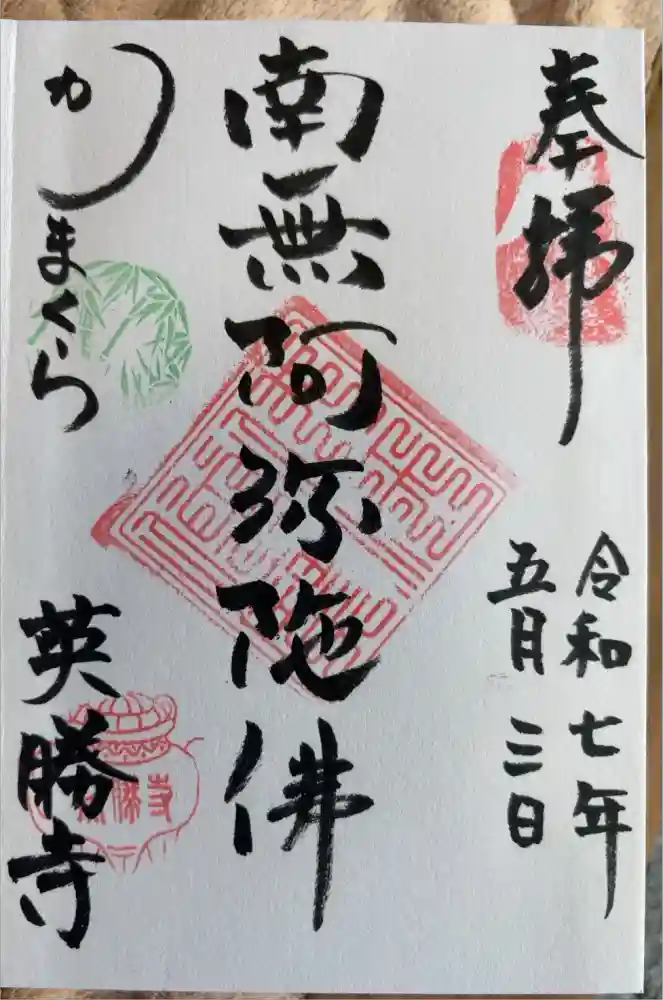 奉拝
令和七年
五月三日
南無阿弥陀佛
かまくら
英勝寺
英勝寺